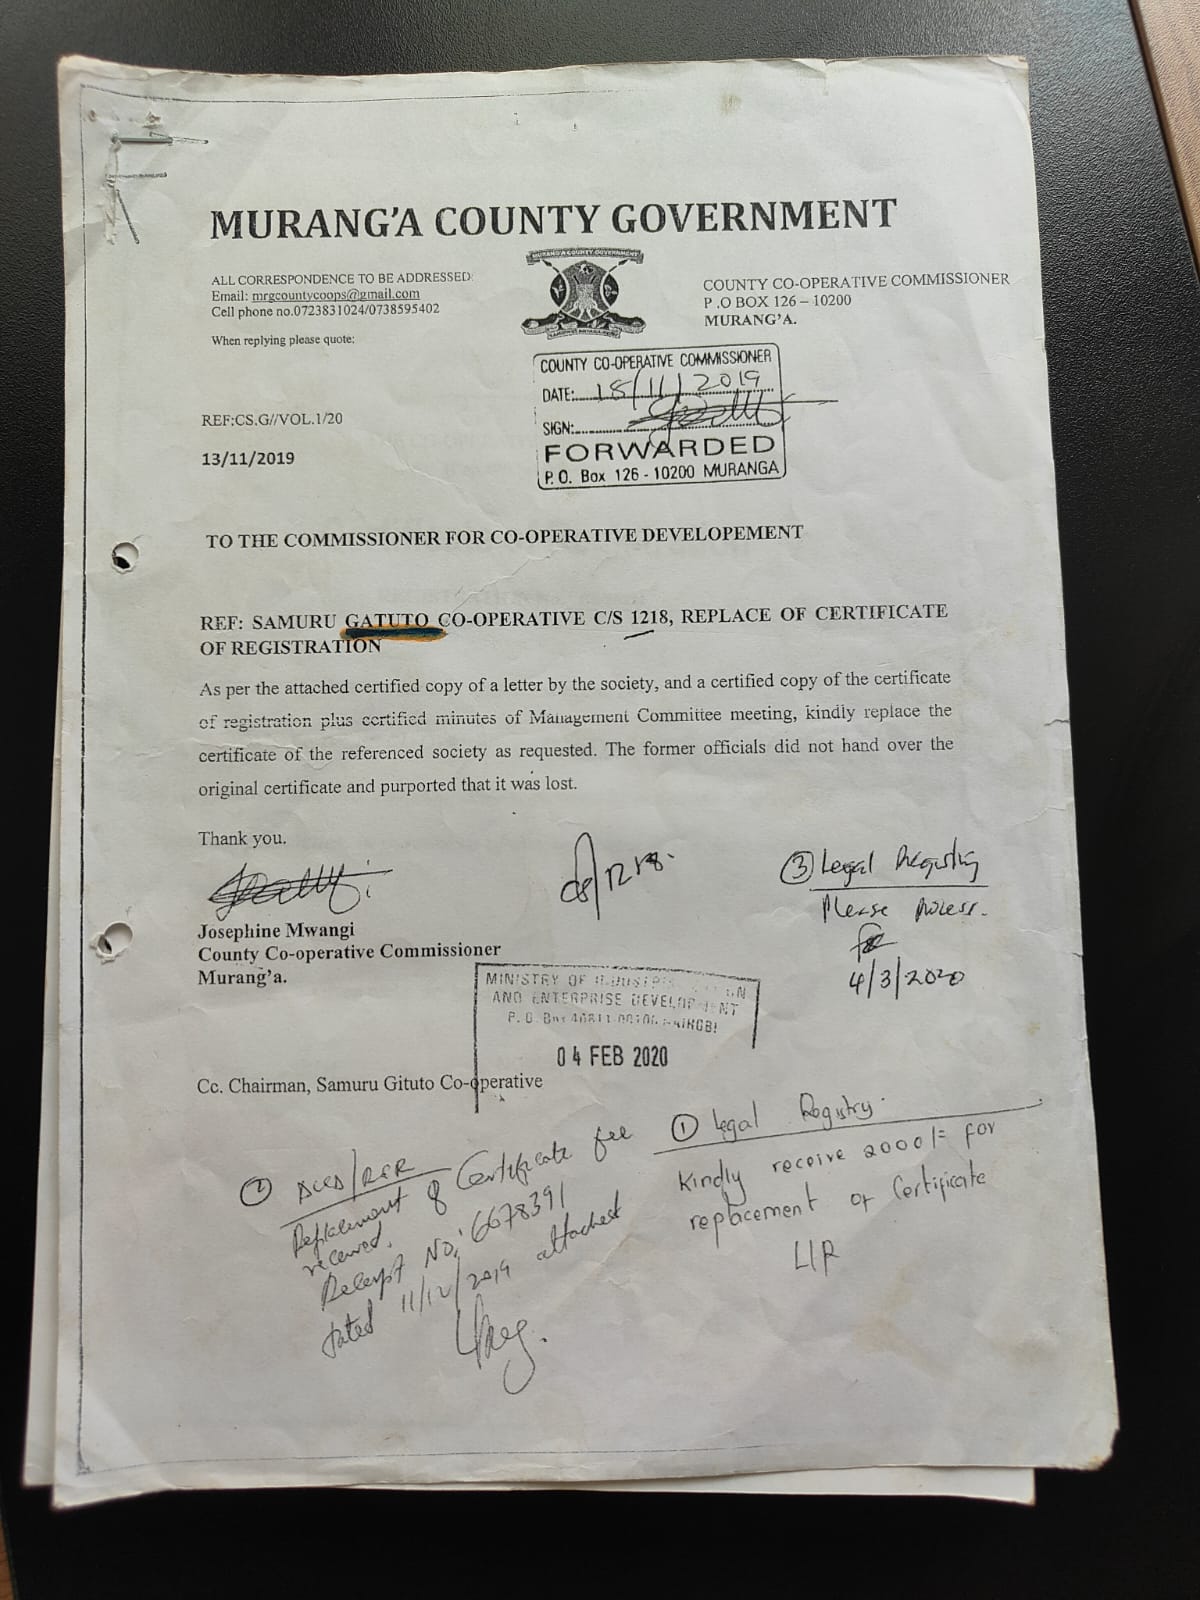 MURANG'A COUNTY GOVERNMENT
ALL CORRESPONDENCE TO BE ADDRESSED:
Email: mrgcountycoops@gmail.com
Cell phone no.0723831024/0738595402
When replying please quote:
MURANG'A COUNTY GOVERNMENT
COUNTY CO-OPERATIVE COMMISSIONER
P .O BOX 126 – 10200
MURANG'A.
COUNTY CO-OPERATIVE COMMISSIONER
DATE: 18/11/2019
SIGN:
FORWARDED
P. O. Box 126 - 10200 MURANGA
REF:CS.G//VOL.1/20
13/11/2019
TO THE COMMISSIONER FOR CO-OPERATIVE DEVELOPEMENT
REF: SAMURU GATUTO CO-OPERATIVE C/S 1218, REPLACE OF CERTIFICATE
OF REGISTRATION
As per the attached certified copy of a letter by the society, and a certified copy of the certificate
of registration plus certified minutes of Management Committee meeting, kindly replace the
certificate of the referenced society as requested. The former officials did not hand over the
original certificate and purported that it was lost.
Thank you.
Josephine Mwangi
County Co-operative Commissioner
Murang'a.
③ Legal Registry
Please process.
4/3/2020
MINISTRY OF
AND ENTERPRISE DEVELOPMENT
P. O. Box NAIROBI
04 FEB 2020
Cc. Chairman, Samuru Gituto Co-operative
① Legal Registry.
Kindly receive 2000/= for
replacement of Certificate
LIR
②
Replacement of Certificate fee
received.
Receipt No: 6678391
dated 11/12/2019 attached